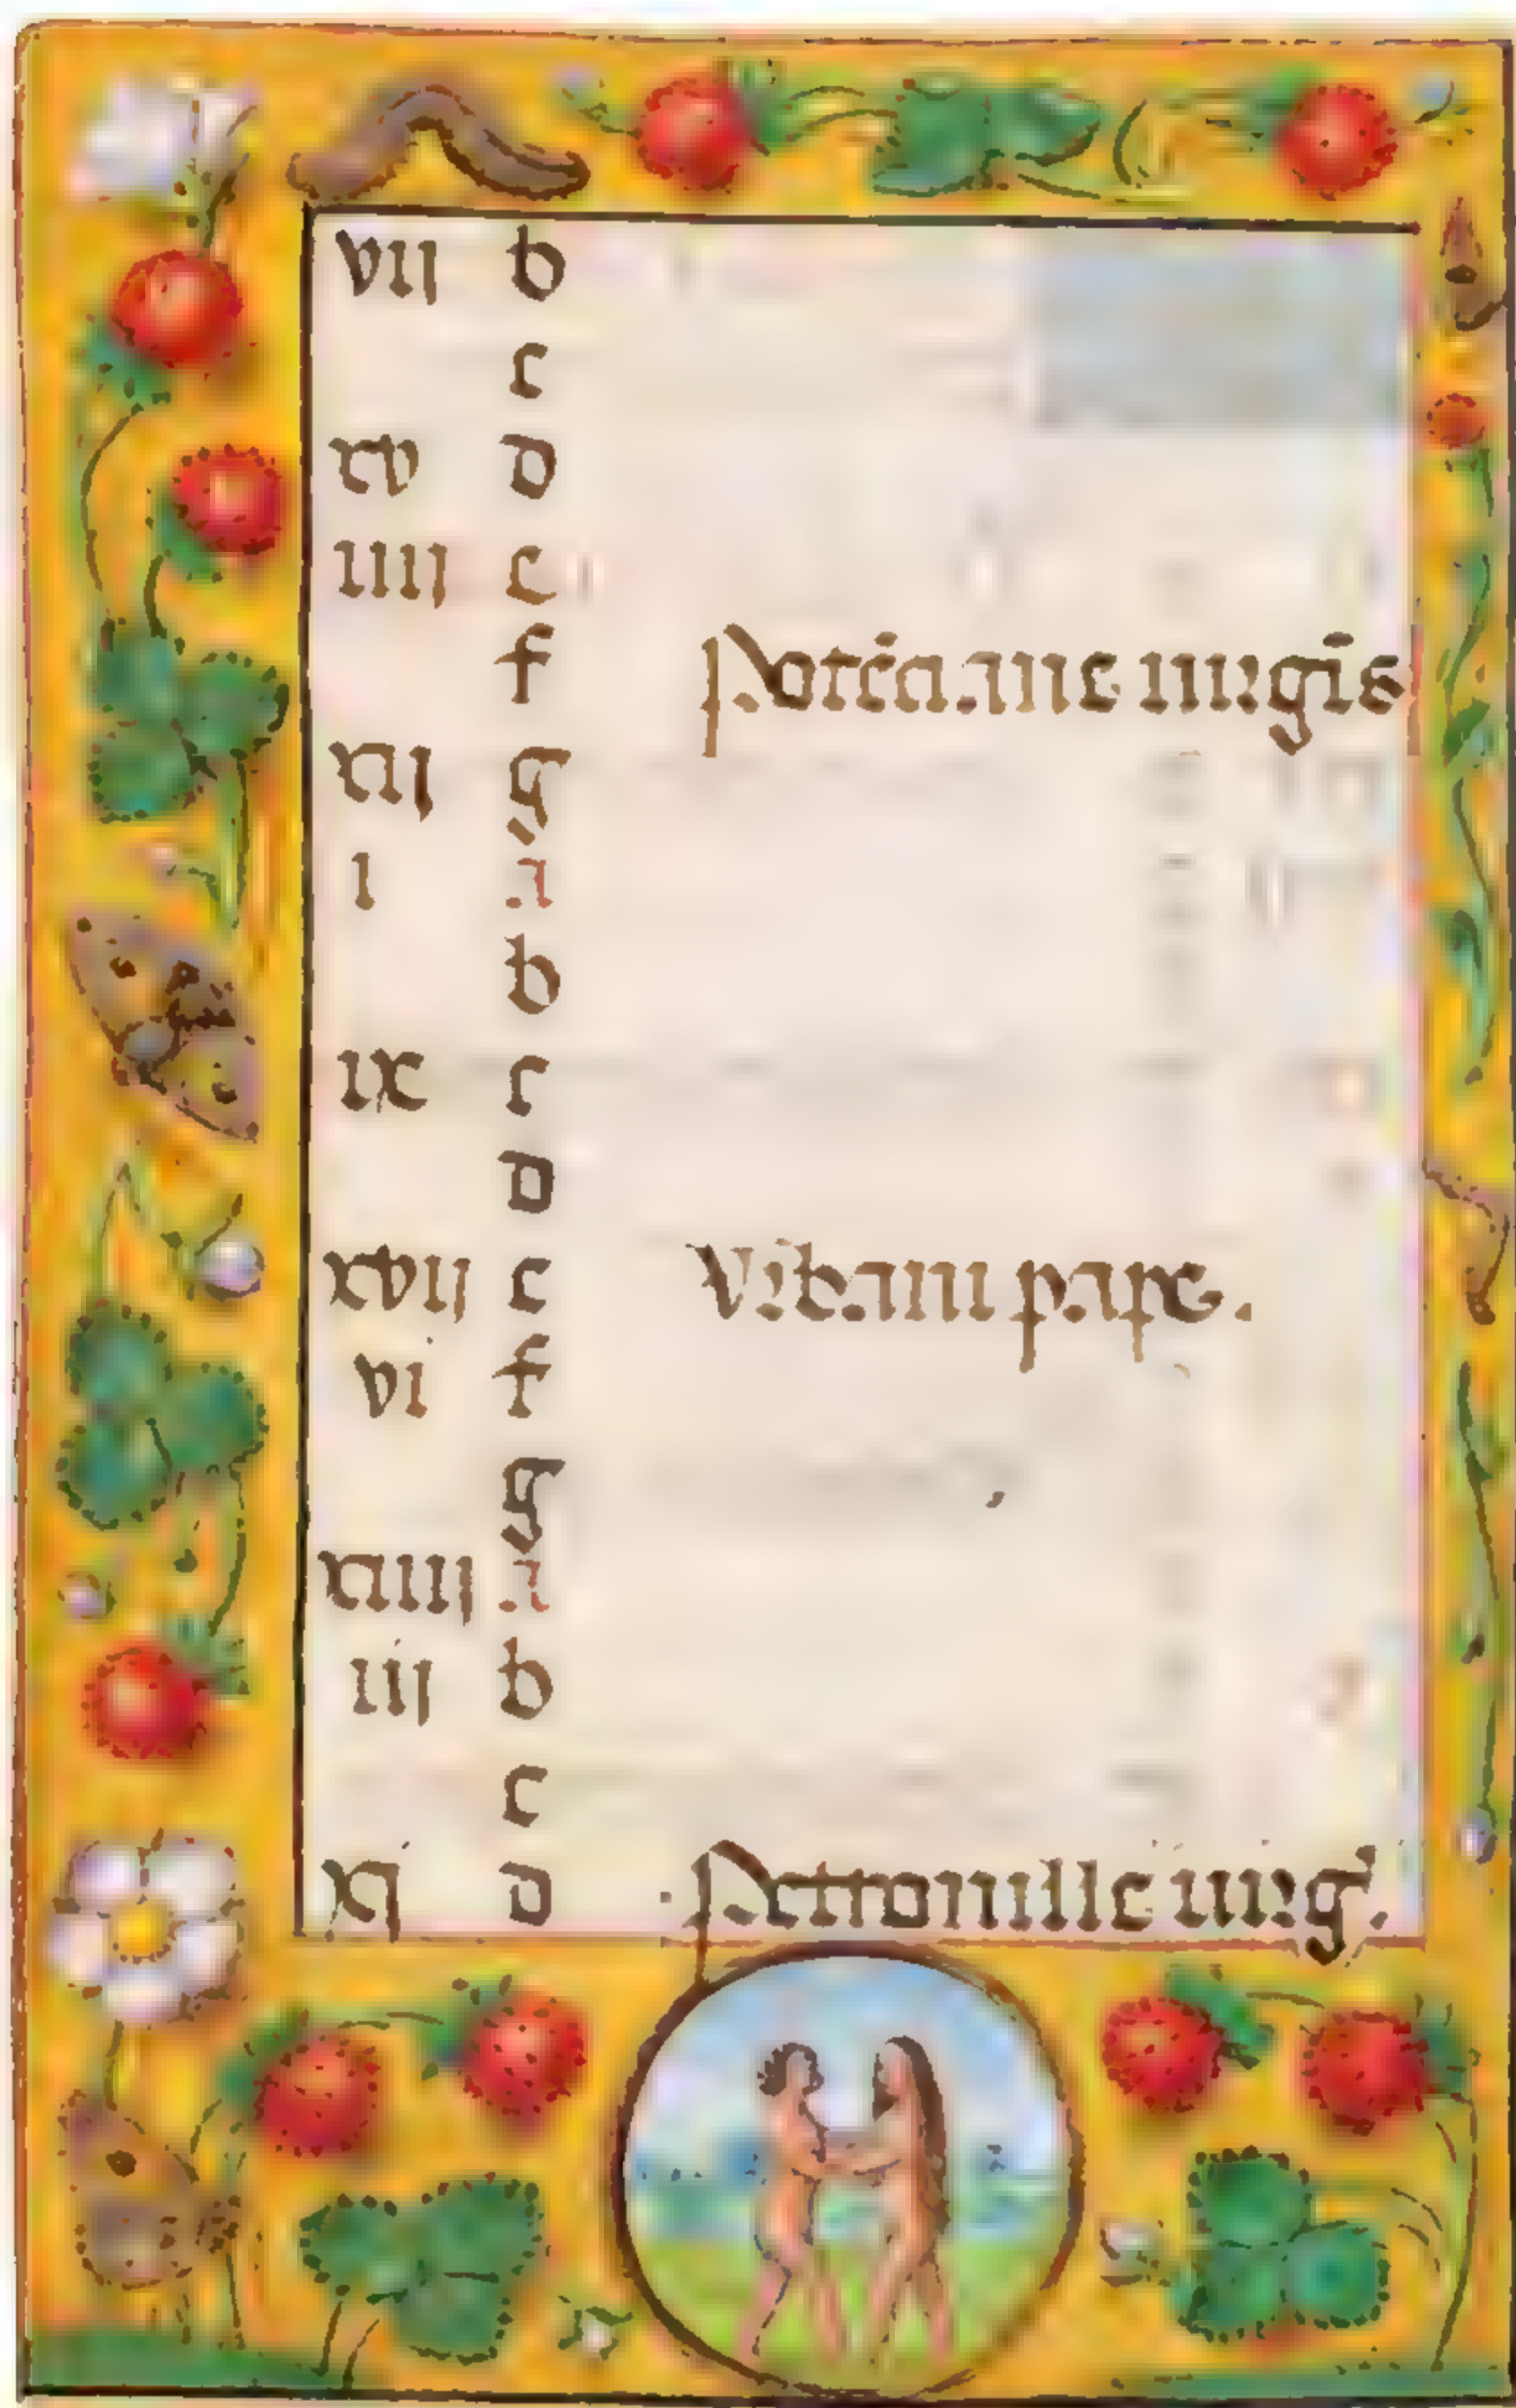 vij b
c
xv d
iiij e
f Potēciane uirgīs
xij g
i a
b
ix c
d
xvij e Vrbani pape.
vi f
g
xiiij a
iij b
c
xj d Petronille uirg'.